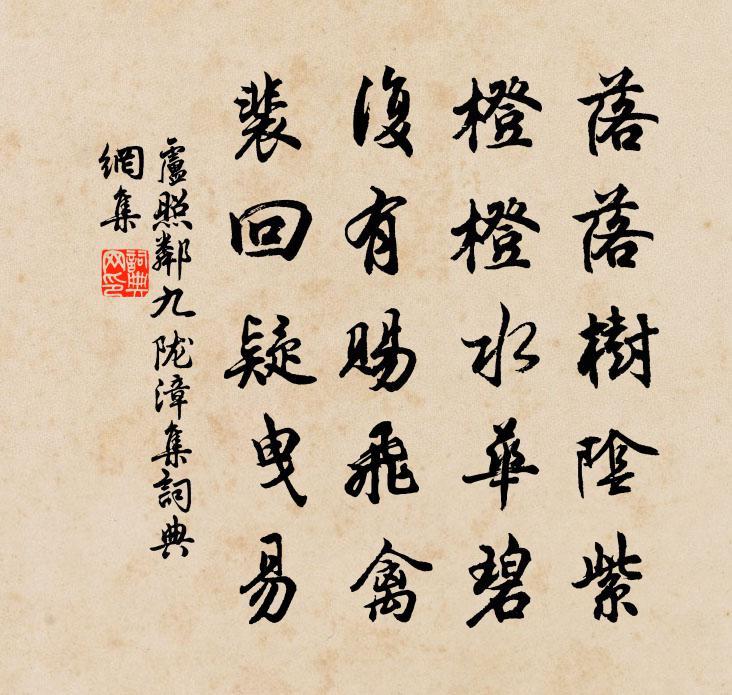 落落樹陰紫
橙橙水華碧
復有賜飛禽
裴回疑曳易
盧照鄰九陇漳集詞典
網集
詞典網印